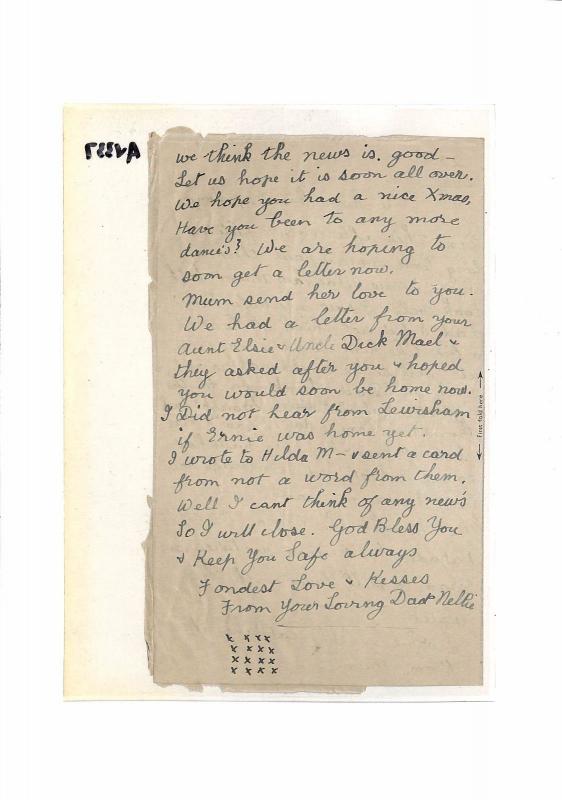 we think the news is. good –
Let us hope it is soon all over.
We hope you had a nice Xmas,
Have you been to any more
dance's? We are hoping to
soon get a letter now.
Mum send her love to you.
We had a letter from your
Aunt Elsie & Uncle Dick Mael &
they asked after you & hoped
you would soon be home now.
I Did not hear from Lewisham
if Ernie was home yet.
I wrote to Hilda M– & sent a card
from not a word from them.
Well I cant think of any new's
So I will close. God Bless You
& Keep You Safe always
Fondest Love & Kesses
From Your Loving Dad & Nellie
x x x x
x x x x
x x x x
x x x x
← First fold here →